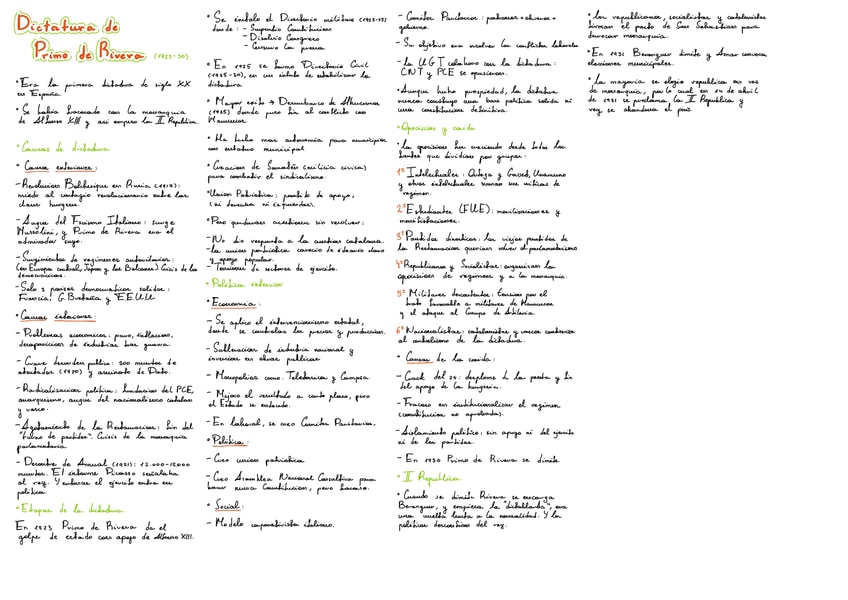 Dictatura de
Primo de Rivera (1923-30).
• Era la primera dictadura de siglo XX
en España
• Se había fracasado con la monarquía
de Alfonso XIII y así empezo la II Republica
• Causas de dictadura
• Causas exteriores:
- Revolucion Bolchevique en Rusia (1917):
miedo al contagio revolucionario entre las
clases burguesas.
- Auge del Fascismo Italiano: surge
Mussolini, y Primo de Rivera era el
admirador suyo.
- Surgimientos de regimenes autoritarios:
(en Europa central, Japon y los Balcanes) Crisis de las
democracias.
- Solo 3 paises democraticos solidos:
Francia, G. Bretaña y EE.UU
• Causas interiores:
- Problemas economicos: paro, inflacion,
desaparicion de industrias tras guerra.
- Grave desorden publico: 200 muertos de
atentados (1920) y asesinato de Dato.
- Radicalizacion politica: fundacion del PCE,
anarquismo, auge del nacionalismo catalan
y vasco.
- Agotamiento de la Restauracion: fin del
"turno de partidos". Crisis de la monarquia
parlamentaria
- Desastre de Annual (1921): 12.000-15.000
muertos. El informe Picasso señalaba
al rey. Y entonces el ejercito entra en
politica.
• Etapas de la dictadura.
En 1923 Primo de Rivera da el
golpe de estado con apoyo de Alfonso XIII.
• Se instalo el Directorio militar (1923-25)
donde: - Suspendio Constitucion
- Disolvio Congreso
- Censuro la prensa
• En 1925 se formo Directorio Civil
(1925-30), en un intento de estabilizar la
dictadura
• Mayor exito → Desembarco de Alhucemas
(1925) donde puso fin al conflicto con
Marruecos.
• Ha hecho mas autonomia para municipios
con estatuto municipal
• Creacion de Somatén (milicia civica)
para combatir el sindicalismo.
• Union Patriotica: partido de apoyo,
(ni derechas ni izquierdas).
• Pero quedaron cuestiones sin resolver:
- No dio respuesta a la cuestion catalana.
- La union patriotica carecio de ideario claro
y apoyo popular.
- Tensiones de sectores de ejercito.
• Politica interior
• Economia:
- Se aplico el intervencionismo estatal,
donde se controlaba los precios y produccion.
- Subvencion de industria nacional y
inversion en obras publicas
- Monopolios como Telefonica y Campsa
- Mejoro el resultado a corto plazo, pero
el Estado se endeudo.
- En laboral, se creo Comites Paritarios.
• Politica:
- Creo union patriotica
- Creo Asamblea Nacional Consultiva para
hacer nueva Constitucion, pero fracaso.
• Social:
- Modelo corporativista italiano.
- Comites Paritarios: patronos + obreros +
gobierno.
- Su objetivo era resolver los conflictos laborales
- La UGT colaboro con la dictadura:
CNT y PCE se opusieron.
• Aunque hubo prosperidad, la dictadura
nunca construyo una base politica solida ni
una constitucion definitiva.
• Oposicion y caida
• La oposicion fue creciendo desde todos los
frentes que dividimos por grupos:
1º Intelectuales: Ortega y Gasset, Unamuno
y otros intelectuales criticas de
regimen.
2º Estudiantes (FUE): movilizaciones y
manifestaciones.
3º Partidos dinasticos: Los viejos partidos de
la Restauracion querian volver al parlamentarismo
4º Republicanos y Socialistas: organizan la
oposicion de regimen y a la monarquia.
5º Militares descontentos: tension por el
trato favorable a militares de Marruecos
y el ataque al Cuerpo de Artilleria.
6º Nacionalistas: catalanistas y vascos contrarios
al centralismo de la dictadura.
• Causas de la caida:
- Crack del 29: desplome de la peseta y fin
del apoyo de la burguesia.
- Fracaso en institucionalizar el regimen
(constitucion no aprobada).
- Aislamiento politico: sin apoyo ni del ejercito
ni de los partidos.
- En 1930 Primo de Rivera se dimite
• II Republica
• Cuando se dimite Rivera se encarga
Berenguer, y empieza la "dictablanda", era
una vuelta lenta a la normalidad. Y los
politicos desconfian del rey.
• Los republicanos, socialistas y catalanistas
firman el pacto de San Sebastian para
derrocar monarquia.
• En 1931 Berenguer dimite y Aznar convoca
elecciones municipales.
• La mayoria se elegio republica en vez
de monarquia, por lo cual en 14 de abril
de 1931 se proclama la II Republica y
rey se abandona el pais